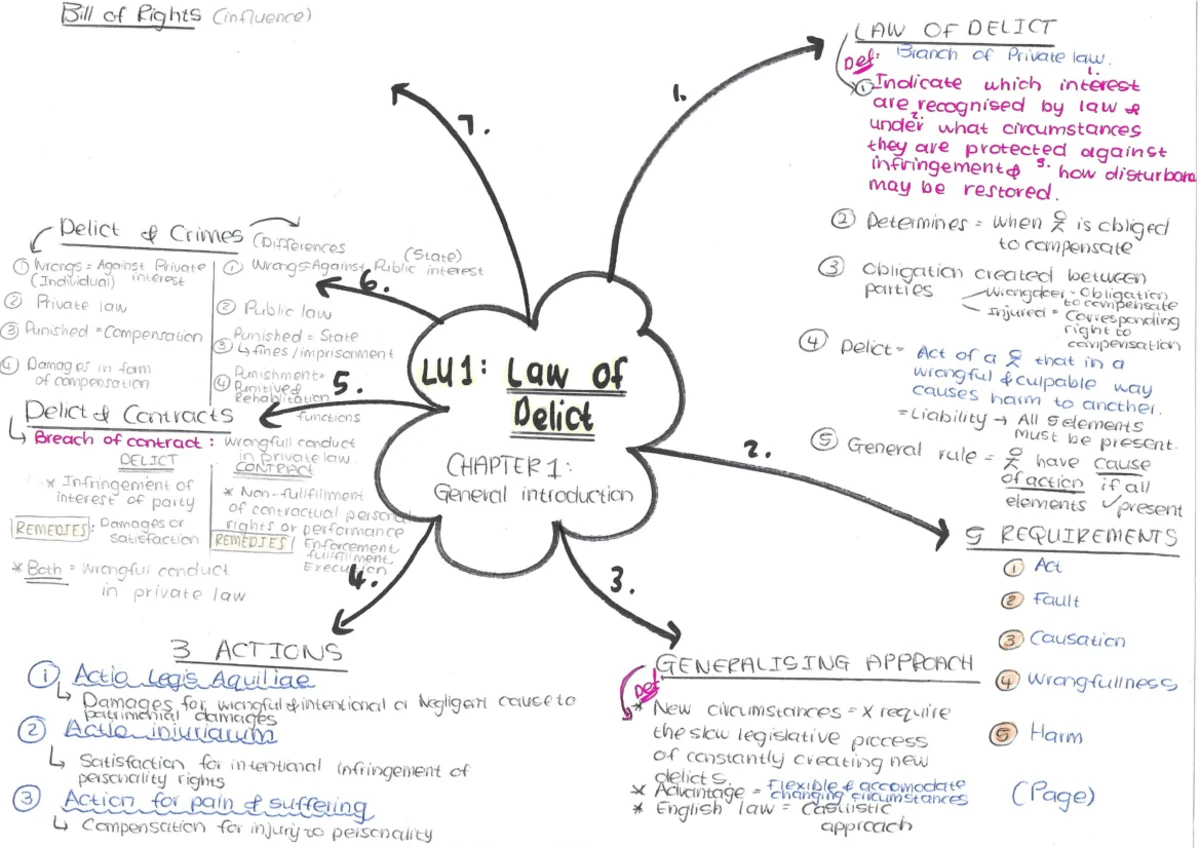 Bill of Rights (influence)
7.
1.
LAW OF DELICT
Def: Branch of Private law.
1.
① Indicate which interest
are recognised by law &
2.
under what circumstances
they are protected against
infringement & 3. how disturbance
may be restored.
② Determines = when is obliged
to compensate
③ Obligation created between
parties
Wrongdoer = Obligation
to compensate
Injured = Corresponding
right to
compensation
④ Delict = Act of a that in a
wrongful & culpable way
causes harm to another.
= Liability → All 5 elements
must be present.
⑤ General rule = have cause
of action if all
elements ✓ present
LU1: Law of
Delict
CHAPTER 1:
General introduction
2.
5 REQUIREMENTS
① Act
② Fault
③ Causation
④ Wrongfullness
⑤ Harm
(Page)
3.
GENERALISING APPROACH
Def
* New circumstances = x require
the slow legislative process
of constantly creating new
delicts.
* Advantage = Flexible & accomodate
changing circumstances
* English law = Casuistic
approach
4.
3 ACTIONS
① Actio Legis Aquiliae
↳ Damages for wrongful & intentional or Negligent cause to
patrimonial damages
② Actio iniuriarum
↳ Satisfaction for intentional infringement of
personality rights
③ Action for pain & suffering
↳ Compensation for injury to personality
5.
Delict & Contracts
↳ Breach of contract : Wrongfull conduct
in private law
DELICT
* Infringement of
interest of party
REMEDIES : Damages or
satisfaction
CONTRACT
* Non-fullfillment
of contractual personal
rights or performance
REMEDIES Enforcement,
fullfillment,
Execution
* Both = Wrongful conduct
in private law
6.
Delict & Crimes (Differences
① Wrongs = Against Private
(Individual) interest
② Private law
③ Punished = Compensation
④ Damages in form
of compensation
(State)
① Wrongs = Against Public interest
② Public law
③ Punished = State
↳ fines / imprisonment
④ Punishment =
Punitive &
Rehabilitation
functions